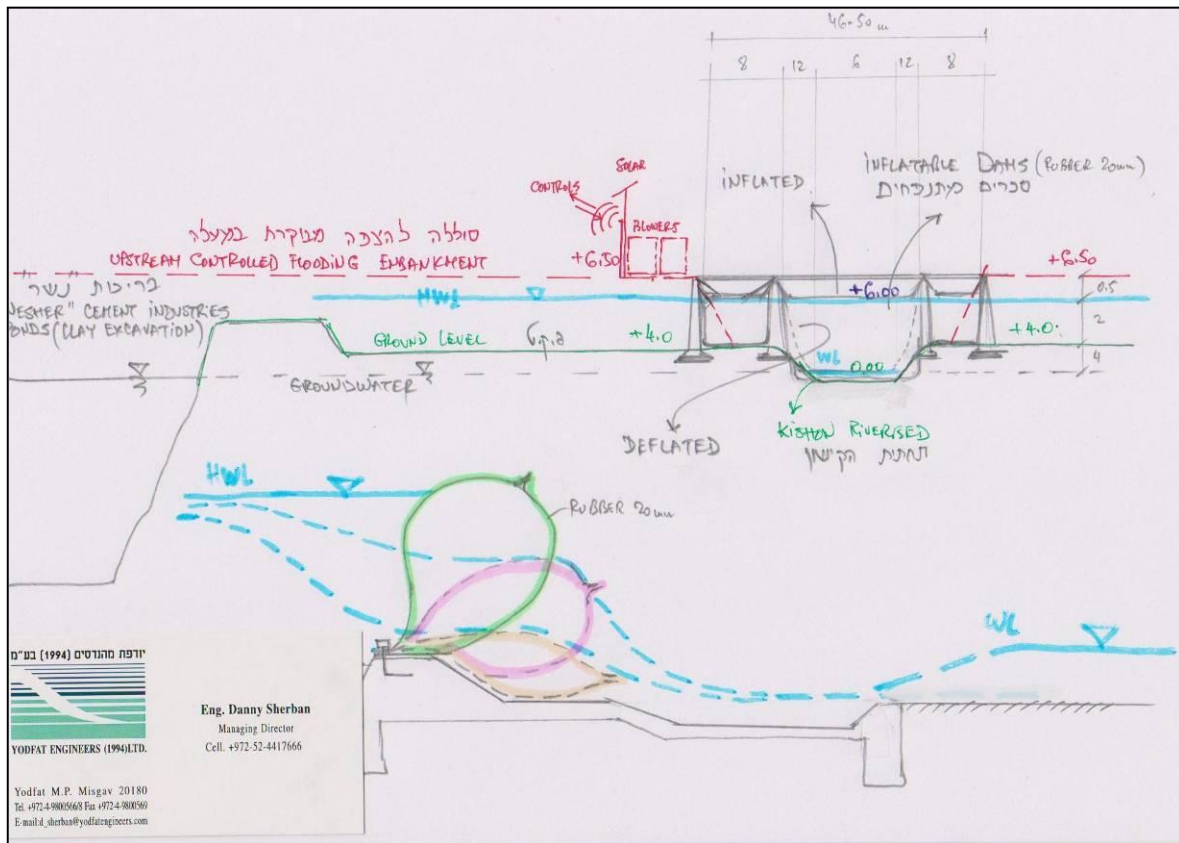 46-50 m
8 12 6 12 8
SOLAR
CONTROLS
INFLATED
INFLATABLE DAMS (RUBBER 20mm)
סכרים מתנפחים
BLOWERS
סוללה להצפה מבוקרת במעלה
UPSTREAM CONTROLLED FLOODING EMBANKMENT
+6.50
+6.50
בריכות נשר
NESHER" CEMENT INDUSTRIES
PONDS (CLAY EXCAVATION)
HWL
+6.00
0.5
GROUND LEVEL
+4.0
2
+4.0
WL
0.00
4
GROUNDWATER
DEFLATED
KISHON RIVERISED
תחתית הקישון
HWL
RUBBER 20mm
WL
יודפת מהנדסים (1994) בע"מ
YODFAT ENGINEERS (1994)LTD.
Eng. Danny Sherban
Managing Director
Cell. +972-52-4417666
Yodfat M.P. Misgav 20180
Tel. +972-4-9800566/8 Fax +972-4-9800569
E-mail:d_sherban@yodfatengineers.com